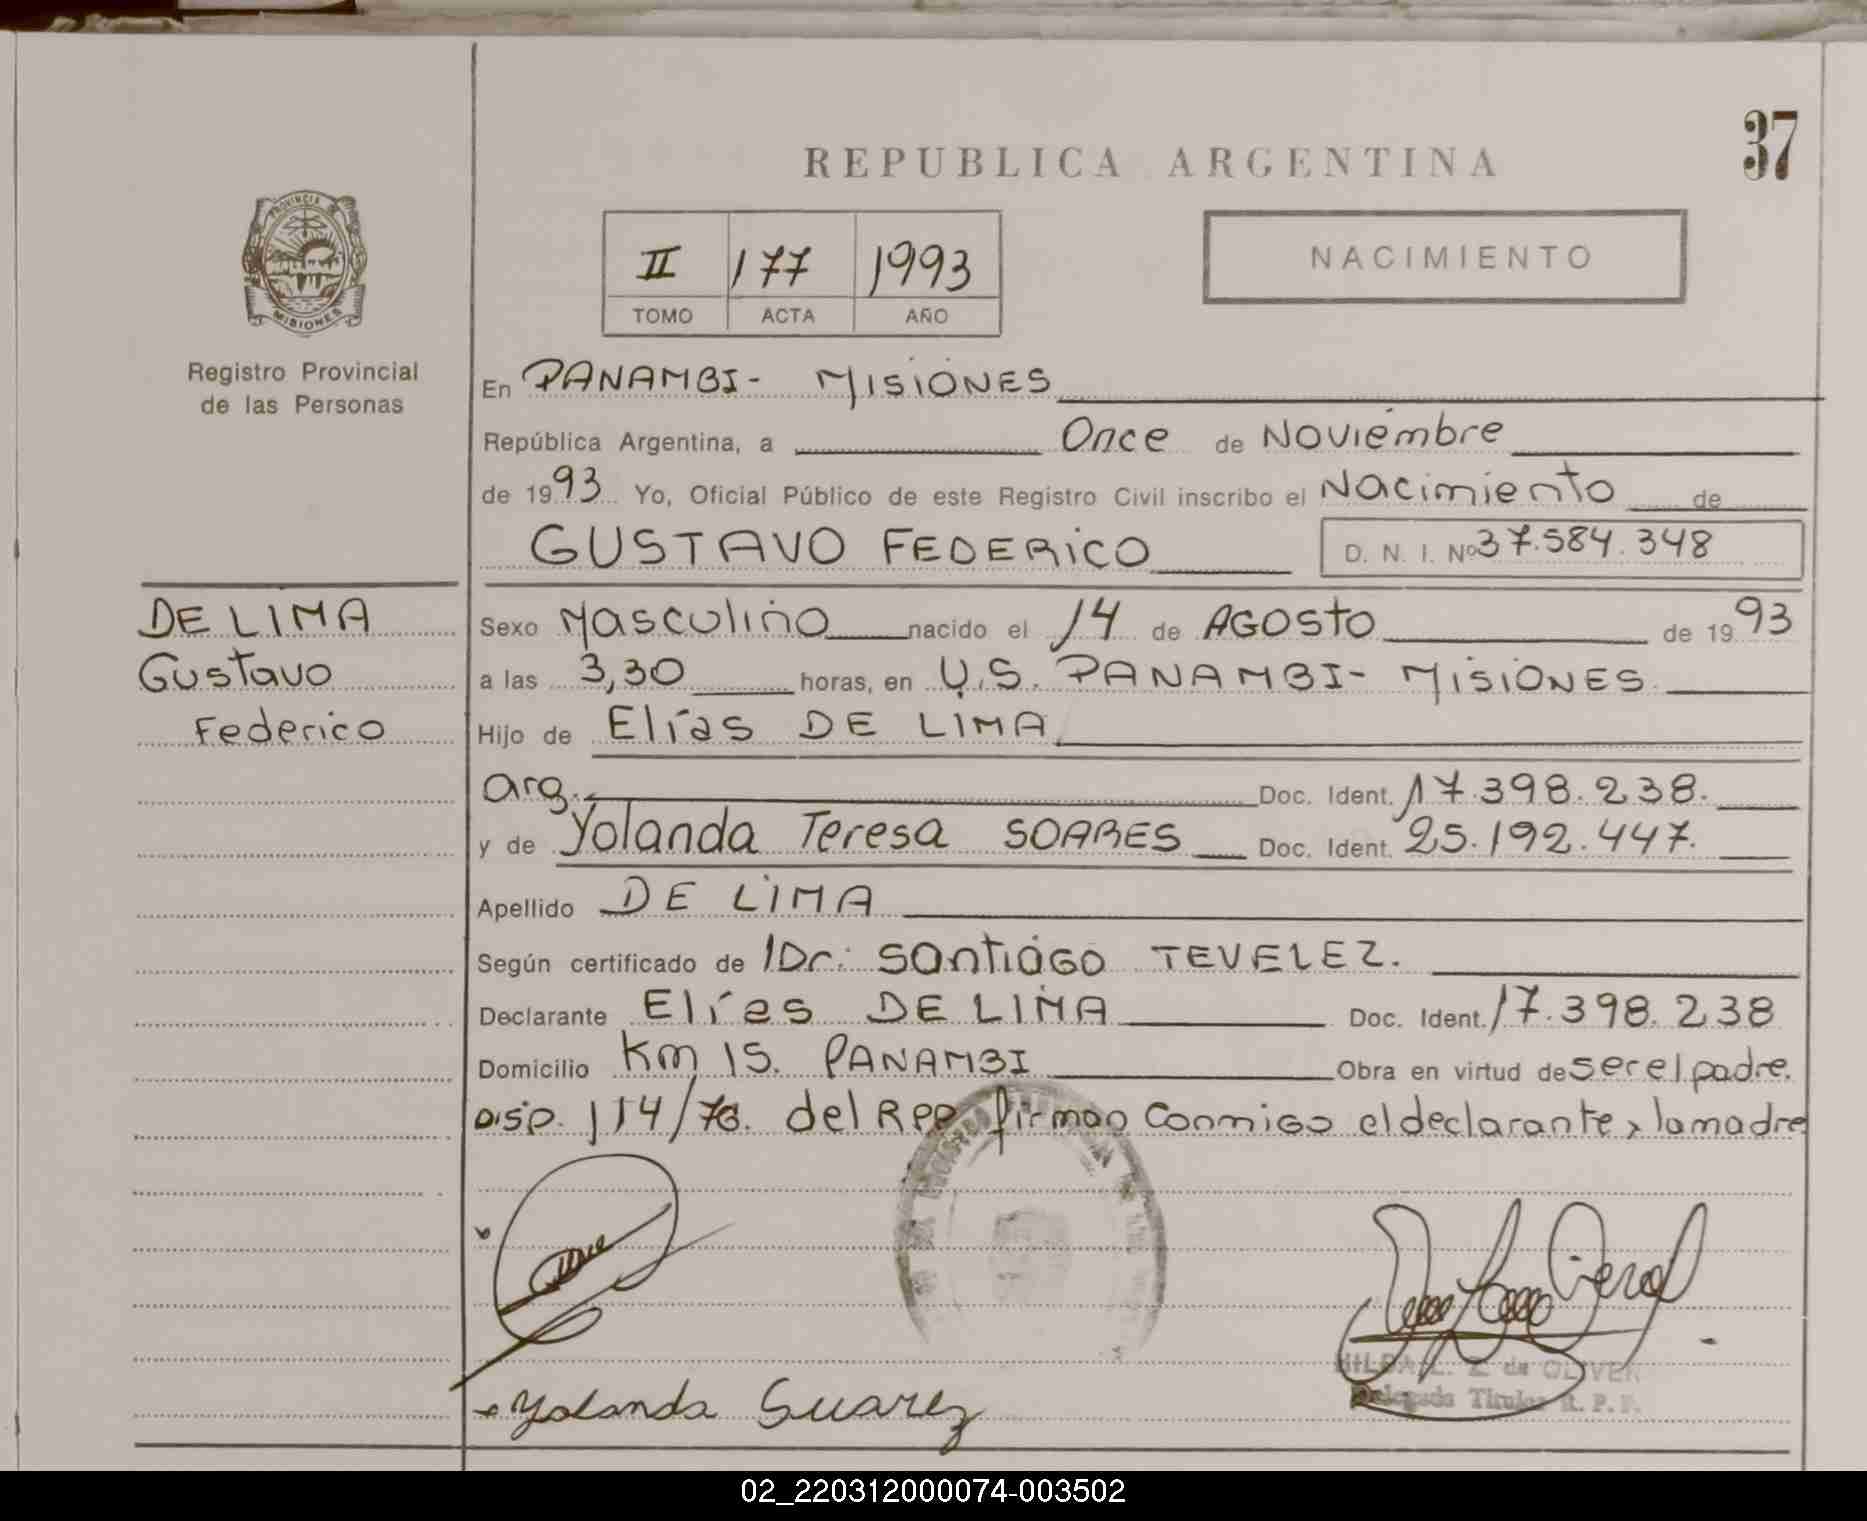 37
REPUBLICA ARGENTINA
PROVINCIA DE
MISIONES
Registro Provincial
de las Personas
II 177 1993
TOMO ACTA AÑO
NACIMIENTO
En PANAMBI- MISIONES
República Argentina, a Once de Noviembre
de 1993 Yo, Oficial Público de este Registro Civil inscribo el Nacimiento de
GUSTAVO FEDERICO D. N. I. Nº 37.584.348
DE LIMA
Gustavo
Federico
Sexo Masculino nacido el 14 de AGOSTO de 1993
a las 3,30 horas, en U.S. PANAMBI- MISIONES
Hijo de Elías DE LIMA
arg. Doc. Ident. 17.398.238.
y de Yolanda Teresa SOARES Doc. Ident. 25.192.447.
Apellido DE LIMA
Según certificado de Dr. Santiago TEVELEZ.
Declarante Elías DE LIMA Doc. Ident. 17.398.238
Domicilio Km 15. PANAMBI Obra en virtud de ser el padre.
DISP. 114/76. del RPP firman conmigo el declarante y la madre
Yolanda Suarez
de OLIVER
Delegada Titular R. P. P.
02_220312000074-003502